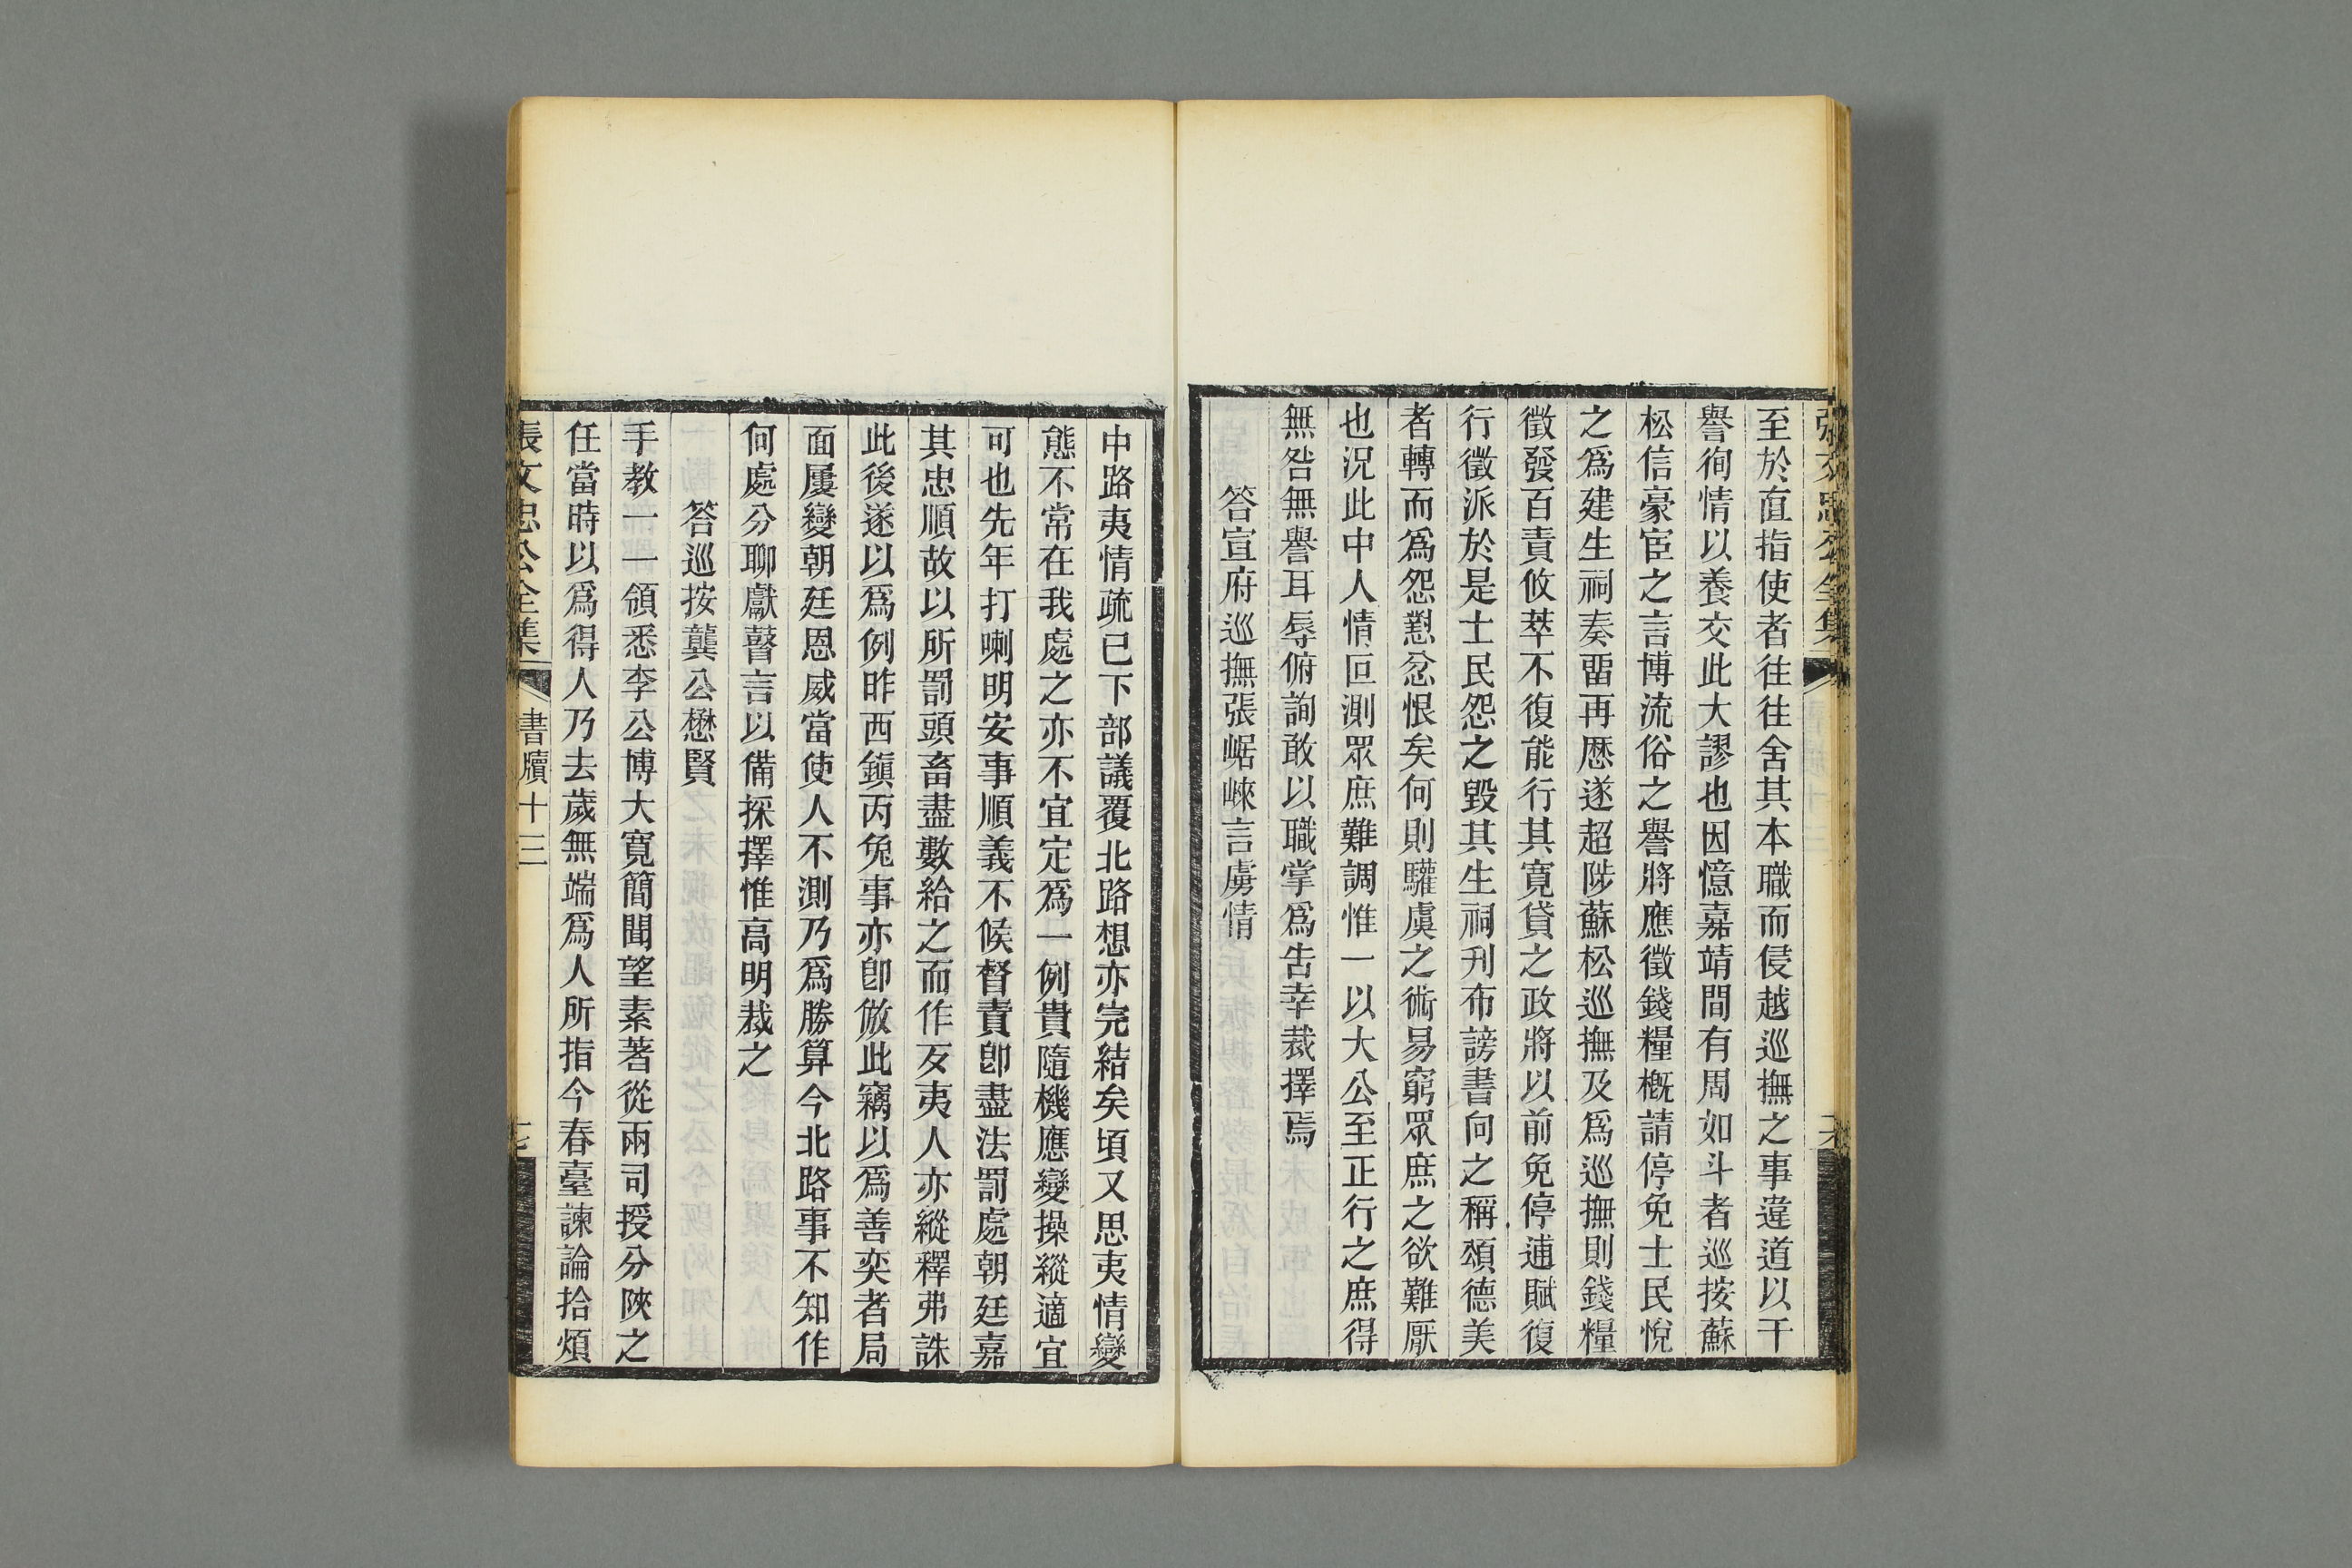 張文忠公全集
至於直指使者往往舍其本職而侵越巡撫之事違道以干
譽徇情以養交此大謬也因憶嘉靖間有周如斗者巡按蘇
松信豪宦之言博流俗之譽將應徵錢糧槪請停免士民悅
之爲建生祠奏畱再歷遂超陟蘇松巡撫及爲巡撫則錢糧
徵發百責攸萃不復能行其寬貸之政將以前免停逋賦復
行徵派於是士民怨之毀其生祠刋布謗書向之稱頌德美
者轉而爲怨懟忿恨矣何則驩虞之術易窮眾庶之欲難厭
也況此中人情叵測眾庶難調惟一以大公至正行之庶得
無咎無譽耳辱俯詢敢以職掌爲告幸裁擇焉
答宣府巡撫張崌崍言虜情
中路夷情疏已下部議覆北路想亦完結矣頃又思夷情變
態不常在我處之亦不宜定爲一例貴隨機應變操縱適宜
可也先年打喇明安事順義不候督責卽盡法罰處朝廷嘉
其忠順故以所罰頭畜盡數給之而作歹夷人亦縱釋弗誅
此後遂以爲例昨西鎭丙兔事亦卽倣此竊以爲善奕者局
面屢變朝廷恩威當使人不測乃爲勝算今北路事不知作
何處分聊獻瞽言以備採擇惟高明裁之
答巡按龔公懋賢
手教一一領悉李公博大寬簡聞望素著從兩司授分陝之
任當時以爲得人乃去歲無端爲人所指今春臺諫論拾煩
張文忠公全集
書牘十三